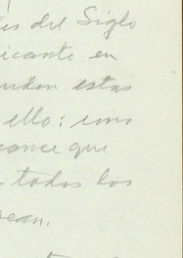 es del Siglo
icante en
udon estas
ello: una
ance que
todos los
ean.